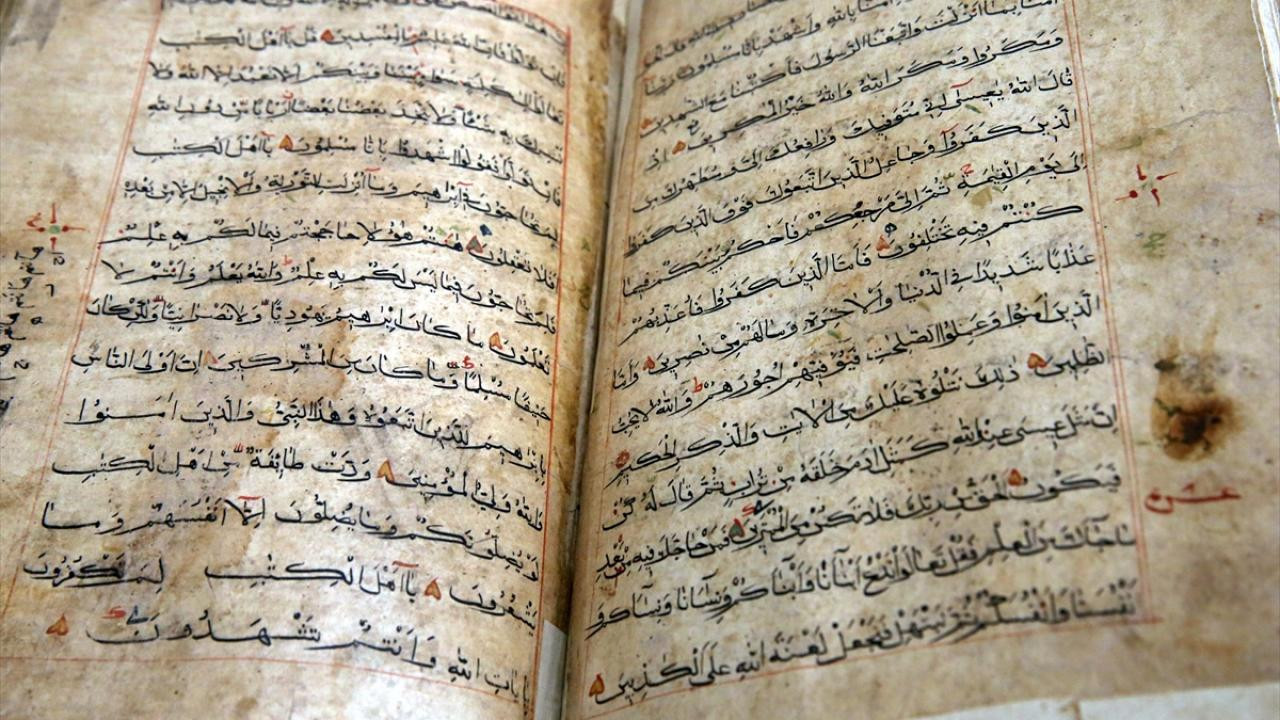 امنا بالله واشهد بانا مسلمون ربنا
امنا بما انزلت واتبعنا الرسول فاكتبنا مع الشهدين
ومكروا ومكر الله والله خير المكرين اذ
قال الله يعيسى اني متوفيك ورافعك الي ومطهرك من
الذين كفروا وجاعل الذين اتبعوك فوق الذين كفروا
الى يوم القيمة ثم الي مرجعكم فاحكم بينكم فيما
كنتم فيه تختلفون فاما الذين كفروا فاعذبهم
عذابا شديدا في الدنيا والاخرة وما لهم من نصرين واما
الذين امنوا وعملوا الصلحت فيوفيهم اجورهم والله لا يحب
الظلمين ذلك نتلوه عليك من الايت والذكر الحكيم
ان مثل عيسى عند الله كمثل ادم خلقه من تراب ثم قال له كن
فيكون الحق من ربك فلا تكن من الممترين فمن حاجك فيه من بعد
ما جاءك من العلم فقل تعالوا ندع ابنانا وابناكم ونسانا ونساكم و
انفسنا وانفسكم ثم نبتهل فنجعل لعنة الله على الكذبين
عشر
فان تولوا فان الله عليم بالمفسدين قل يا اهل الكتب
تعالوا الى كلمة سواء بيننا وبينكم الا نعبد الا الله ولا
نشرك به شيئا ولا يتخذ بعضنا بعضا اربابا من دون الله
فان تولوا فقولوا اشهدوا بانا مسلمون يا اهل الكتب
لم تحاجون في ابرهيم وما انزلت التورية والانجيل الا من بعده
افلا تعقلون هانتم هؤلاء حاججتم فيما لكم به علم
فلم تحاجون فيما ليس لكم به علم والله يعلم وانتم لا
تعلمون ما كان ابرهيم يهوديا ولا نصرانيا ولكن كان
حنيفا مسلما وما كان من المشركين ان اولى الناس
بابرهيم للذين اتبعوه وهذا النبي والذين امنوا
والله ولي المؤمنين ودت طائفة من اهل الكتب
لو يضلونكم وما يضلون الا انفسهم وما
يشعرون يا اهل الكتب لم تكفرون
بايات الله وانتم تشهدون